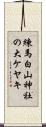 練馬白山神社
の大ケヤキ